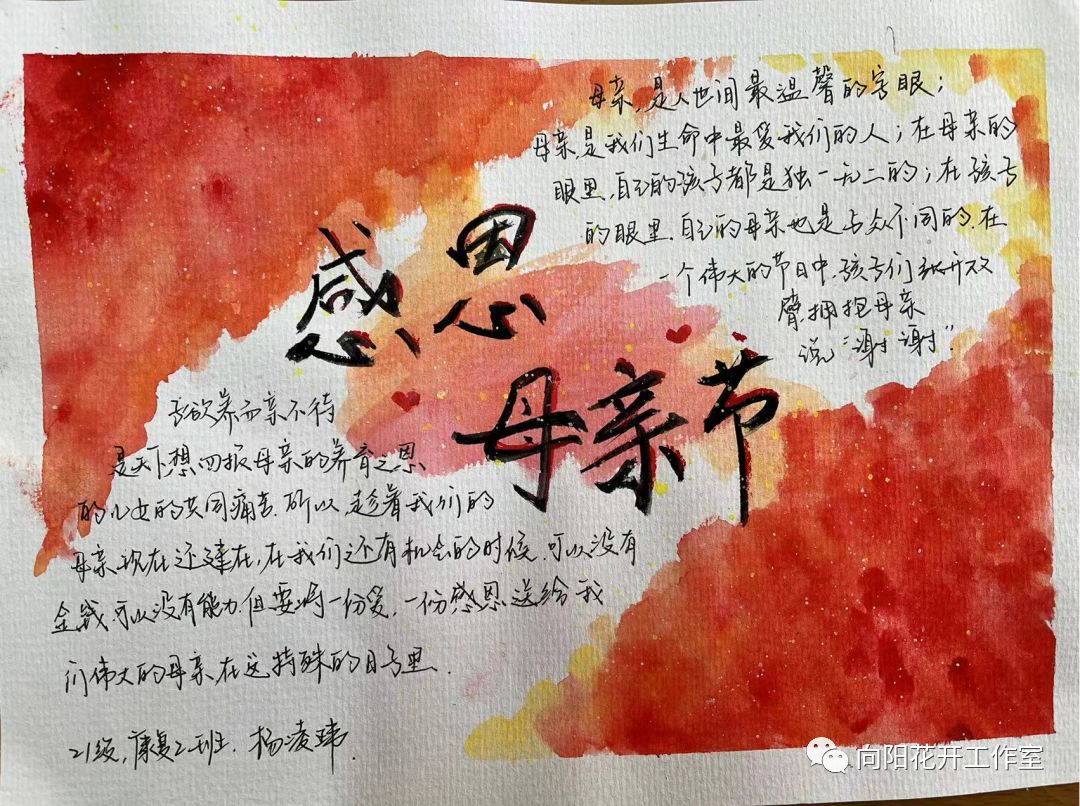 母亲,是人世间最温馨的字眼;
母亲,是我们生命中最爱我们的人;在母亲的
眼里,自己的孩子都是独一无二的;在孩子
的眼里,自己的母亲也是与众不同的,在
一个伟大的节日中,孩子们张开双
臂,拥抱母亲
说“谢谢”.
感恩
母亲节
子欲养而亲不待
是天下想回报母亲的养育之恩
的儿女的共同痛苦.所以,趁着我们的
母亲现在还建在,在我们还有机会的时候,可以没有
金钱,可以没有能力,但要将一份爱,一份感恩送给我
们伟大的母亲,在这特殊的日子里.
21级,康复2班.杨凌玮.
向阳花开工作室